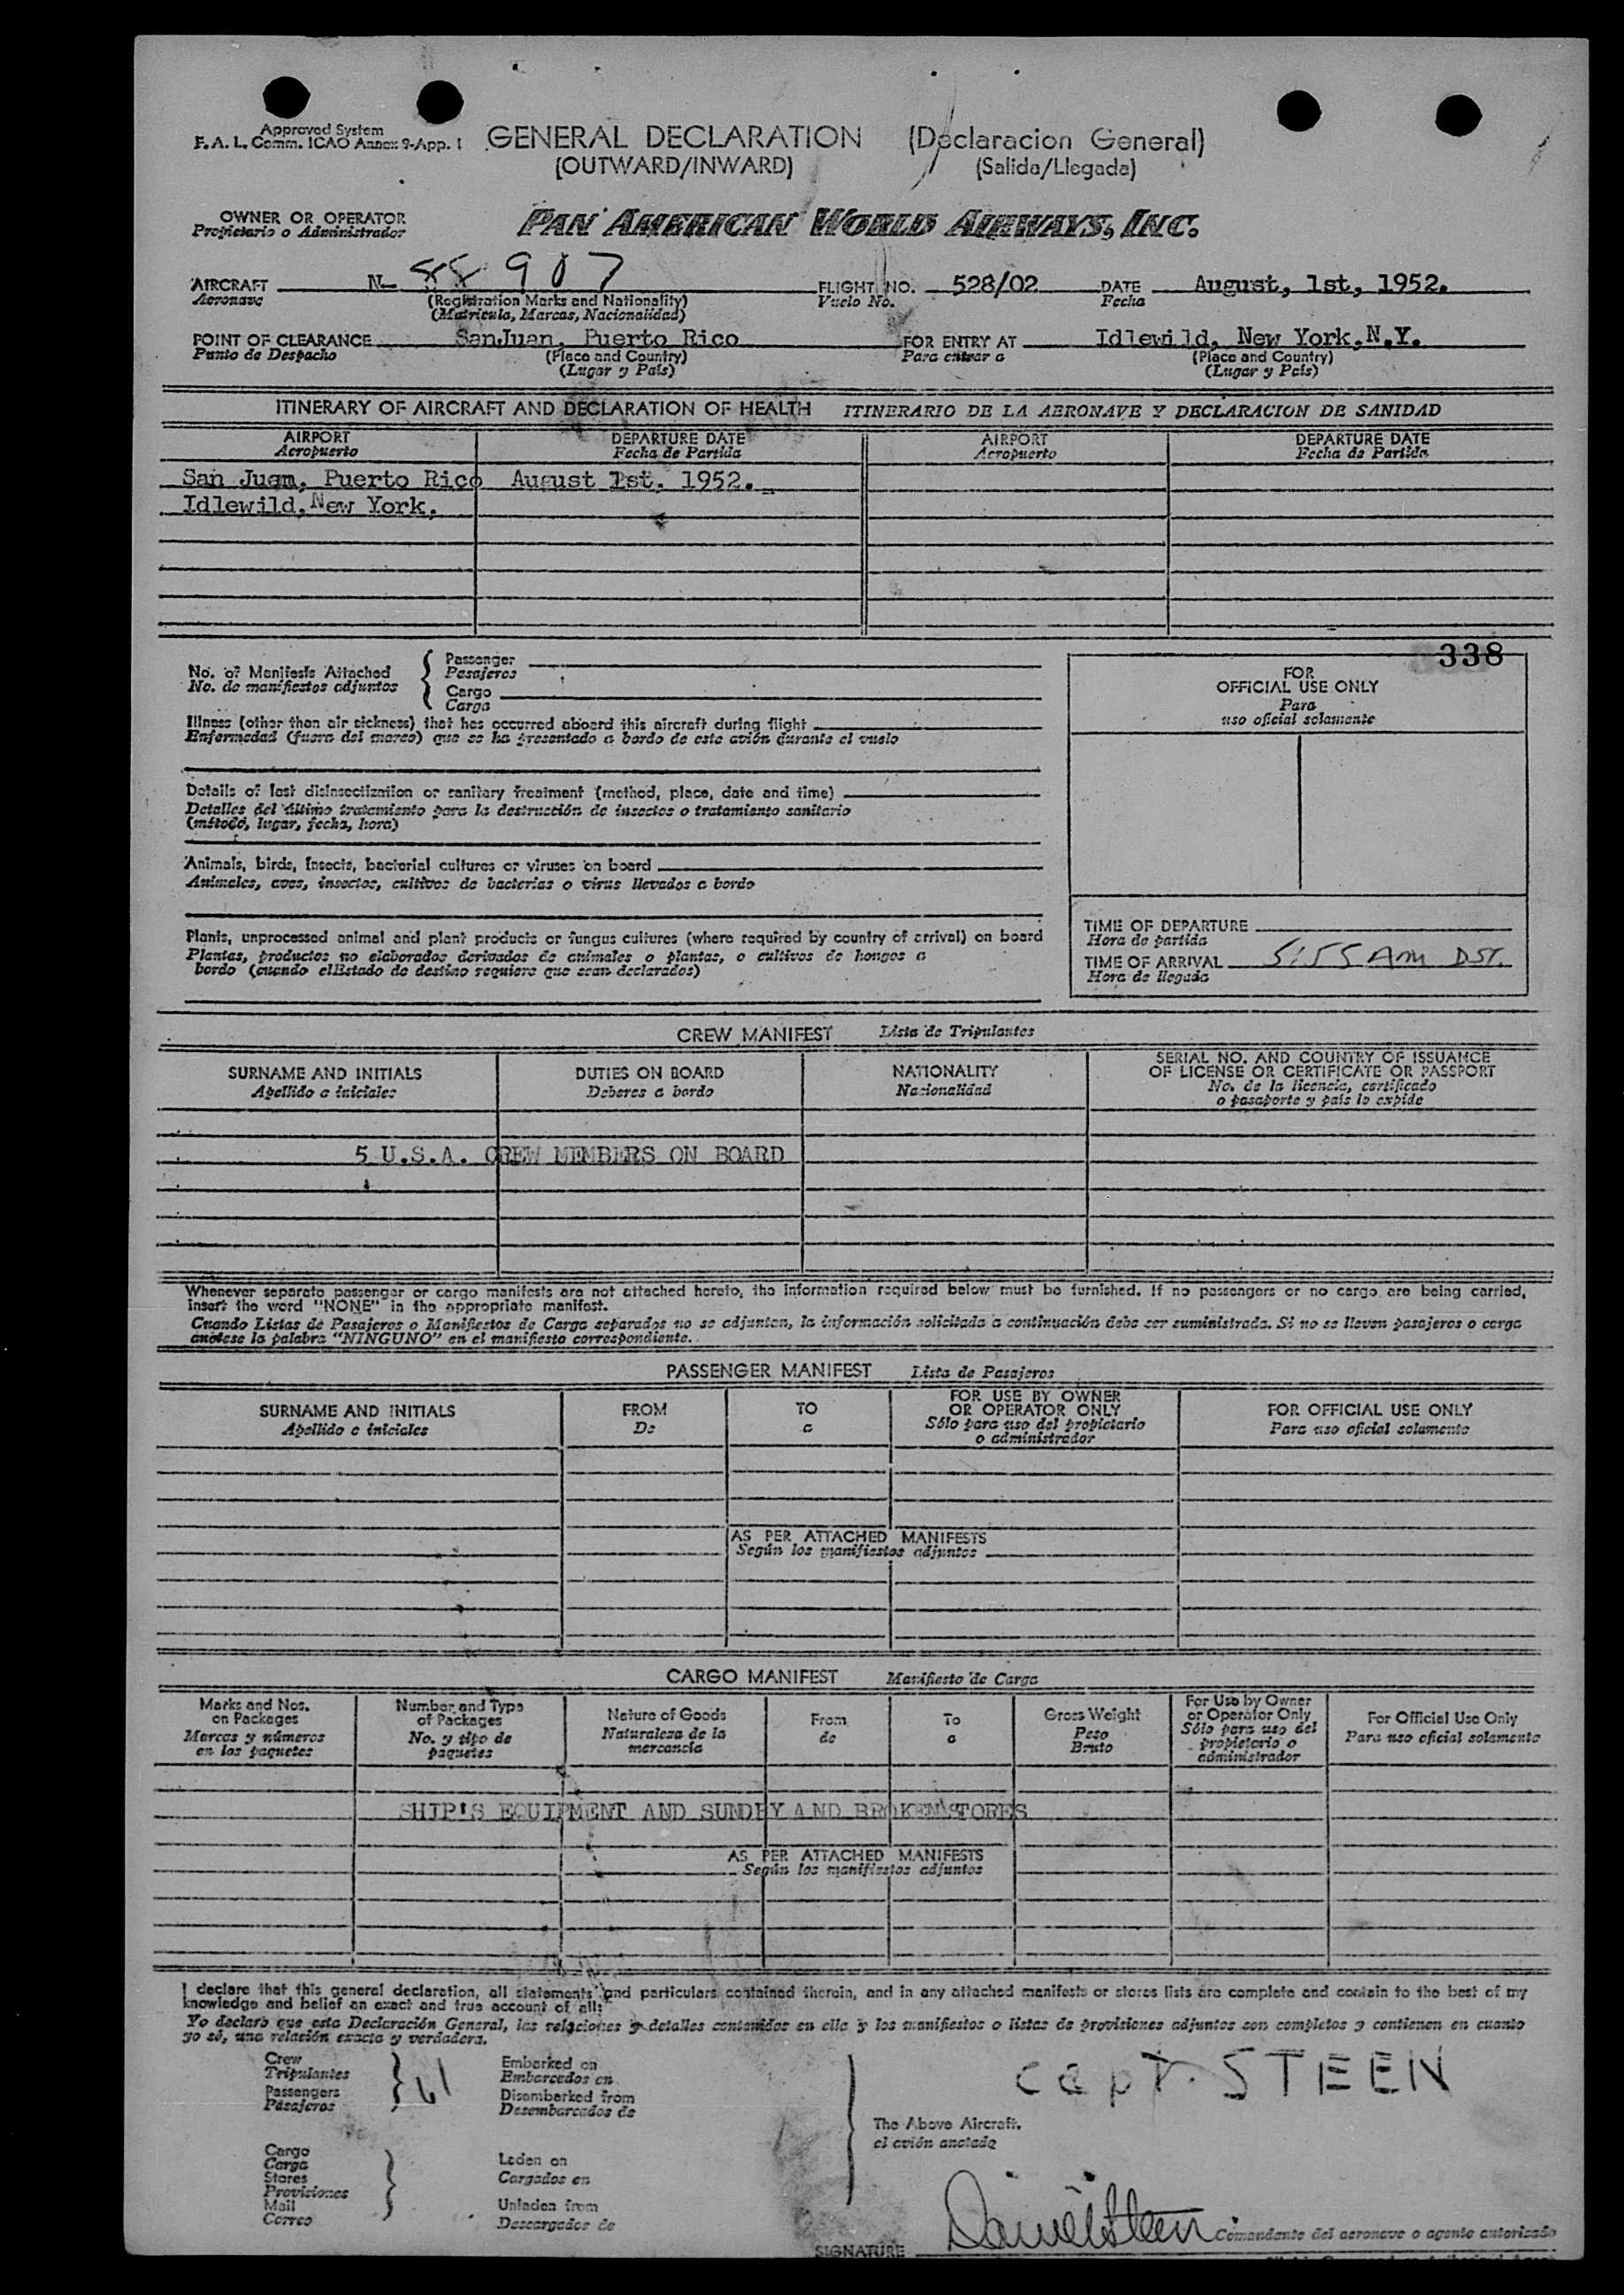 Approved System
F. A. L. Comm. ICAO Annex 9-App. I
GENERAL DECLARATION (Declaracion General)
(OUTWARD/INWARD) (Salida/Llegada)
OWNER OR OPERATOR
Propietario o Administrador
PAN AMERICAN WORLD AIRWAYS, INC.
AIRCRAFT N- 88907 FLIGHT NO. 528/02 DATE August, 1st, 1952.
Aeronave (Registration Marks and Nationality) Vuelo No. Fecha
(Matricula, Marcas, Nacionalidad)
POINT OF CLEARANCE SanJuan, Puerto Rico FOR ENTRY AT Idlewild, New York, N.Y.
Punto de Despacho (Place and Country) Para entrar a (Place and Country)
(Lugar y País) (Lugar y País)
ITINERARY OF AIRCRAFT AND DECLARATION OF HEALTH ITINERARIO DE LA AERONAVE Y DECLARACION DE SANIDAD
AIRPORT DEPARTURE DATE AIRPORT DEPARTURE DATE
Aeropuerto Fecha de Partida Aeropuerto Fecha de Partida
San Juan, Puerto Rico August 1st. 1952.
Idlewild, New York.
338
No. of Manifests Attached
No. de manifiestos adjuntos
Passenger
Pasajeros
Cargo
Carga
FOR
OFFICIAL USE ONLY
Para
uso oficial solamente
Illness (other than air sickness) that has occurred aboard this aircraft during flight
Enfermedad (fuera del mareo) que se ha presentado a bordo de este avión durante el vuelo
Details of last disinsectization or sanitary treatment (method, place, date and time)
Detalles del último tratamiento para la destrucción de insectos o tratamiento sanitario
(método, lugar, fecha, hora)
Animals, birds, insects, bacterial cultures or viruses on board
Animales, aves, insectos, cultivos de bacterias o virus llevados a bordo
Plants, unprocessed animal and plant products or fungus cultures (where required by country of arrival) on board
Plantas, productos no elaborados derivados de animales o plantas, o cultivos de hongos a
bordo (cuando elEstado de destino requiere que sean declarados)
TIME OF DEPARTURE
Hora de partida
TIME OF ARRIVAL 5:55 AM DST.
Hora de llegada
CREW MANIFEST Lista de Tripulantes
SURNAME AND INITIALS DUTIES ON BOARD NATIONALITY SERIAL NO. AND COUNTRY OF ISSUANCE
OF LICENSE OR CERTIFICATE OR PASSPORT
Apellido e iniciales Deberes a bordo Nacionalidad No. de la licencia, certificado
o pasaporte y país lo expide
5 U.S.A. CREW MEMBERS ON BOARD
Whenever separate passenger or cargo manifests are not attached hereto, the information required below must be furnished. If no passengers or no cargo are being carried,
insert the word "NONE" in the appropriate manifest.
Cuando Listas de Pasajeros o Manifiestos de Carga separados no se adjuntan, la información solicitada a continuación debe ser suministrada. Si no se llevan pasajeros o carga
anótese la palabra "NINGUNO" en el manifiesto correspondiente.
PASSENGER MANIFEST Lista de Pasajeros
SURNAME AND INITIALS FROM TO FOR USE BY OWNER
OR OPERATOR ONLY FOR OFFICIAL USE ONLY
Apellido e iniciales De a Sólo para uso del propietario
o administrador Para uso oficial solamente
AS PER ATTACHED MANIFESTS
Según los manifiestos adjuntos
CARGO MANIFEST Manifiesto de Carga
Marks and Nos.
on Packages
Marcas y números
en los paquetes
Number and Type
of Packages
No. y tipo de
paquetes
Nature of Goods
Naturaleza de la
mercancía
From
de
To
a
Gross Weight
Peso
Bruto
For Use by Owner
or Operator Only
Sólo para uso del
propietario o
administrador
For Official Use Only
Para uso oficial solamente
SHIP'S EQUIPMENT AND SUNDRY AND BROKEN STORES
AS PER ATTACHED MANIFESTS
Según los manifiestos adjuntos
I declare that this general declaration, all statements and particulars contained therein, and in any attached manifests or stores lists are complete and contain to the best of my
knowledge and belief an exact and true account of all:
Yo declaro que esta Declaración General, las relaciones y detalles contenidos en ella y los manifiestos o listas de provisiones adjuntos son completos y contienen en cuanto
yo sé, una relación exacta y verdadera.
Crew
Tripulantes
Passengers
Pasajeros
61
Embarked on
Embarcados en
Disembarked from
Desembarcados de
capt. STEEN
The Above Aircraft.
el avión anotado
Cargo
Carga
Stores
Provisiones
Mail
Correo
Laden on
Cargados en
Unladen from
Descargados de
SIGNATURE Daniel Steen
Comandante del aeronave o agente autorizado